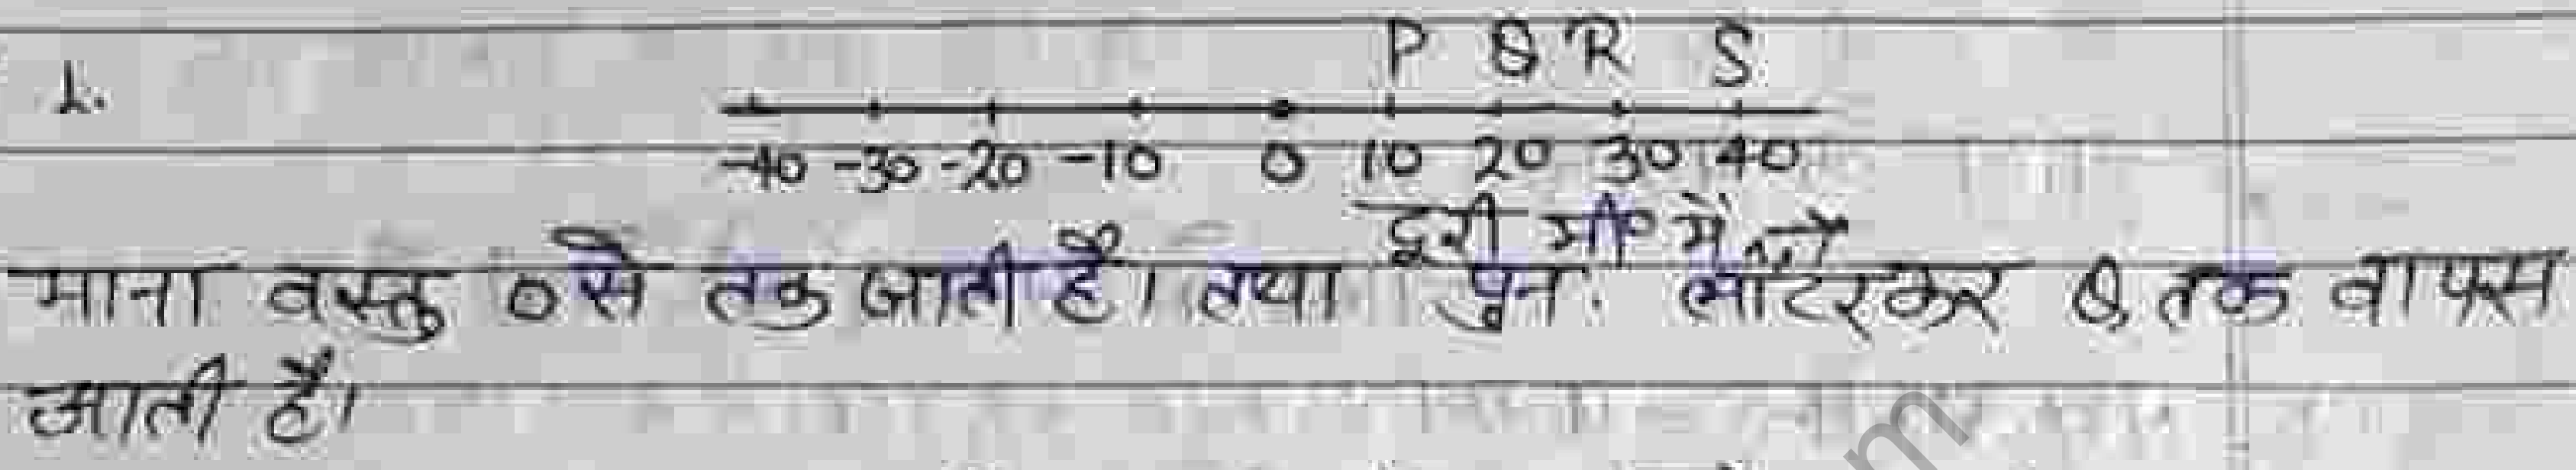 1.
P Q R S
-40 -30 -20 -10 0 10 20 30 40
दूरी मी० में
माना वस्तु 0 से तक जाती है। तथा पुनः लौटकर Q तक वापस
आती है।
m